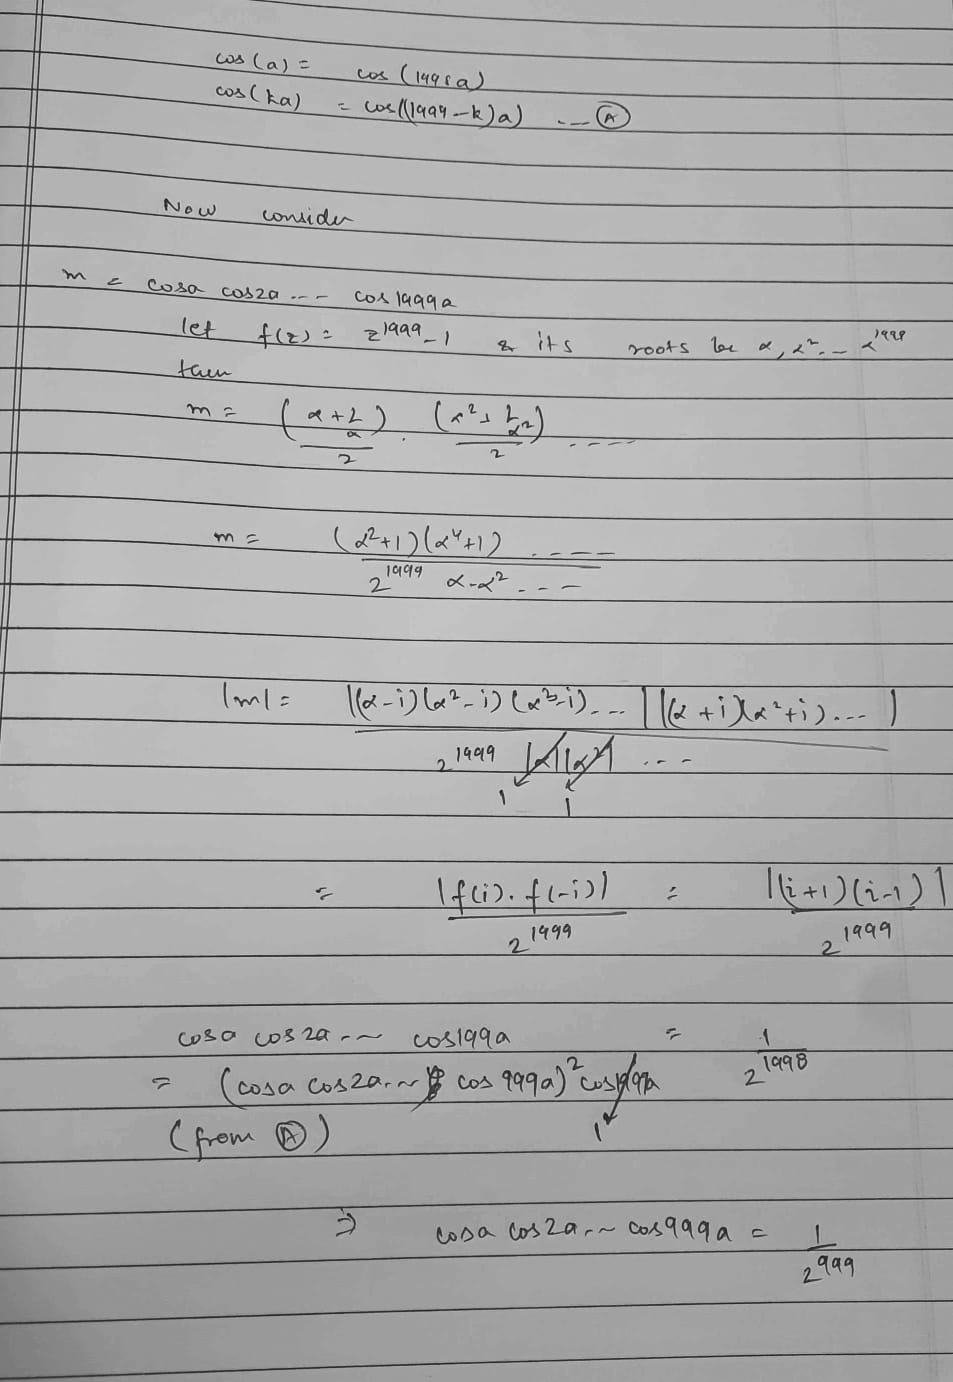 cos(a) = cos(1998a)
cos(ka) = cos((1999-k)a) --- Ⓐ
Now consider
m = cosa cos2a --- cos1999a
let f(z) = z^1999 - 1 & its roots be α, α^2 -- α^1998
then
m = (α + 1/α)/2 . (α^2 + 1/α^2)/2 ----
m = (α^2+1)(α^4+1) ---- / 2^1999 α-α^2 ---
|m| = |(α-i)(α^2-i)(α^3-i)---| |(α+i)(α^2+i)---| / 2^1999 |α||α^2| ---
1 1
= |f(i).f(-i)| / 2^1999 = |(i+1)(i-1)| / 2^1999
cosa cos2a -~ cos199a = 1/2^1998
= (cosa cos2a -~ cos999a)^2 cos1999a
(from Ⓐ) 1
⇒ cosa cos2a -~ cos999a = 1/2^999